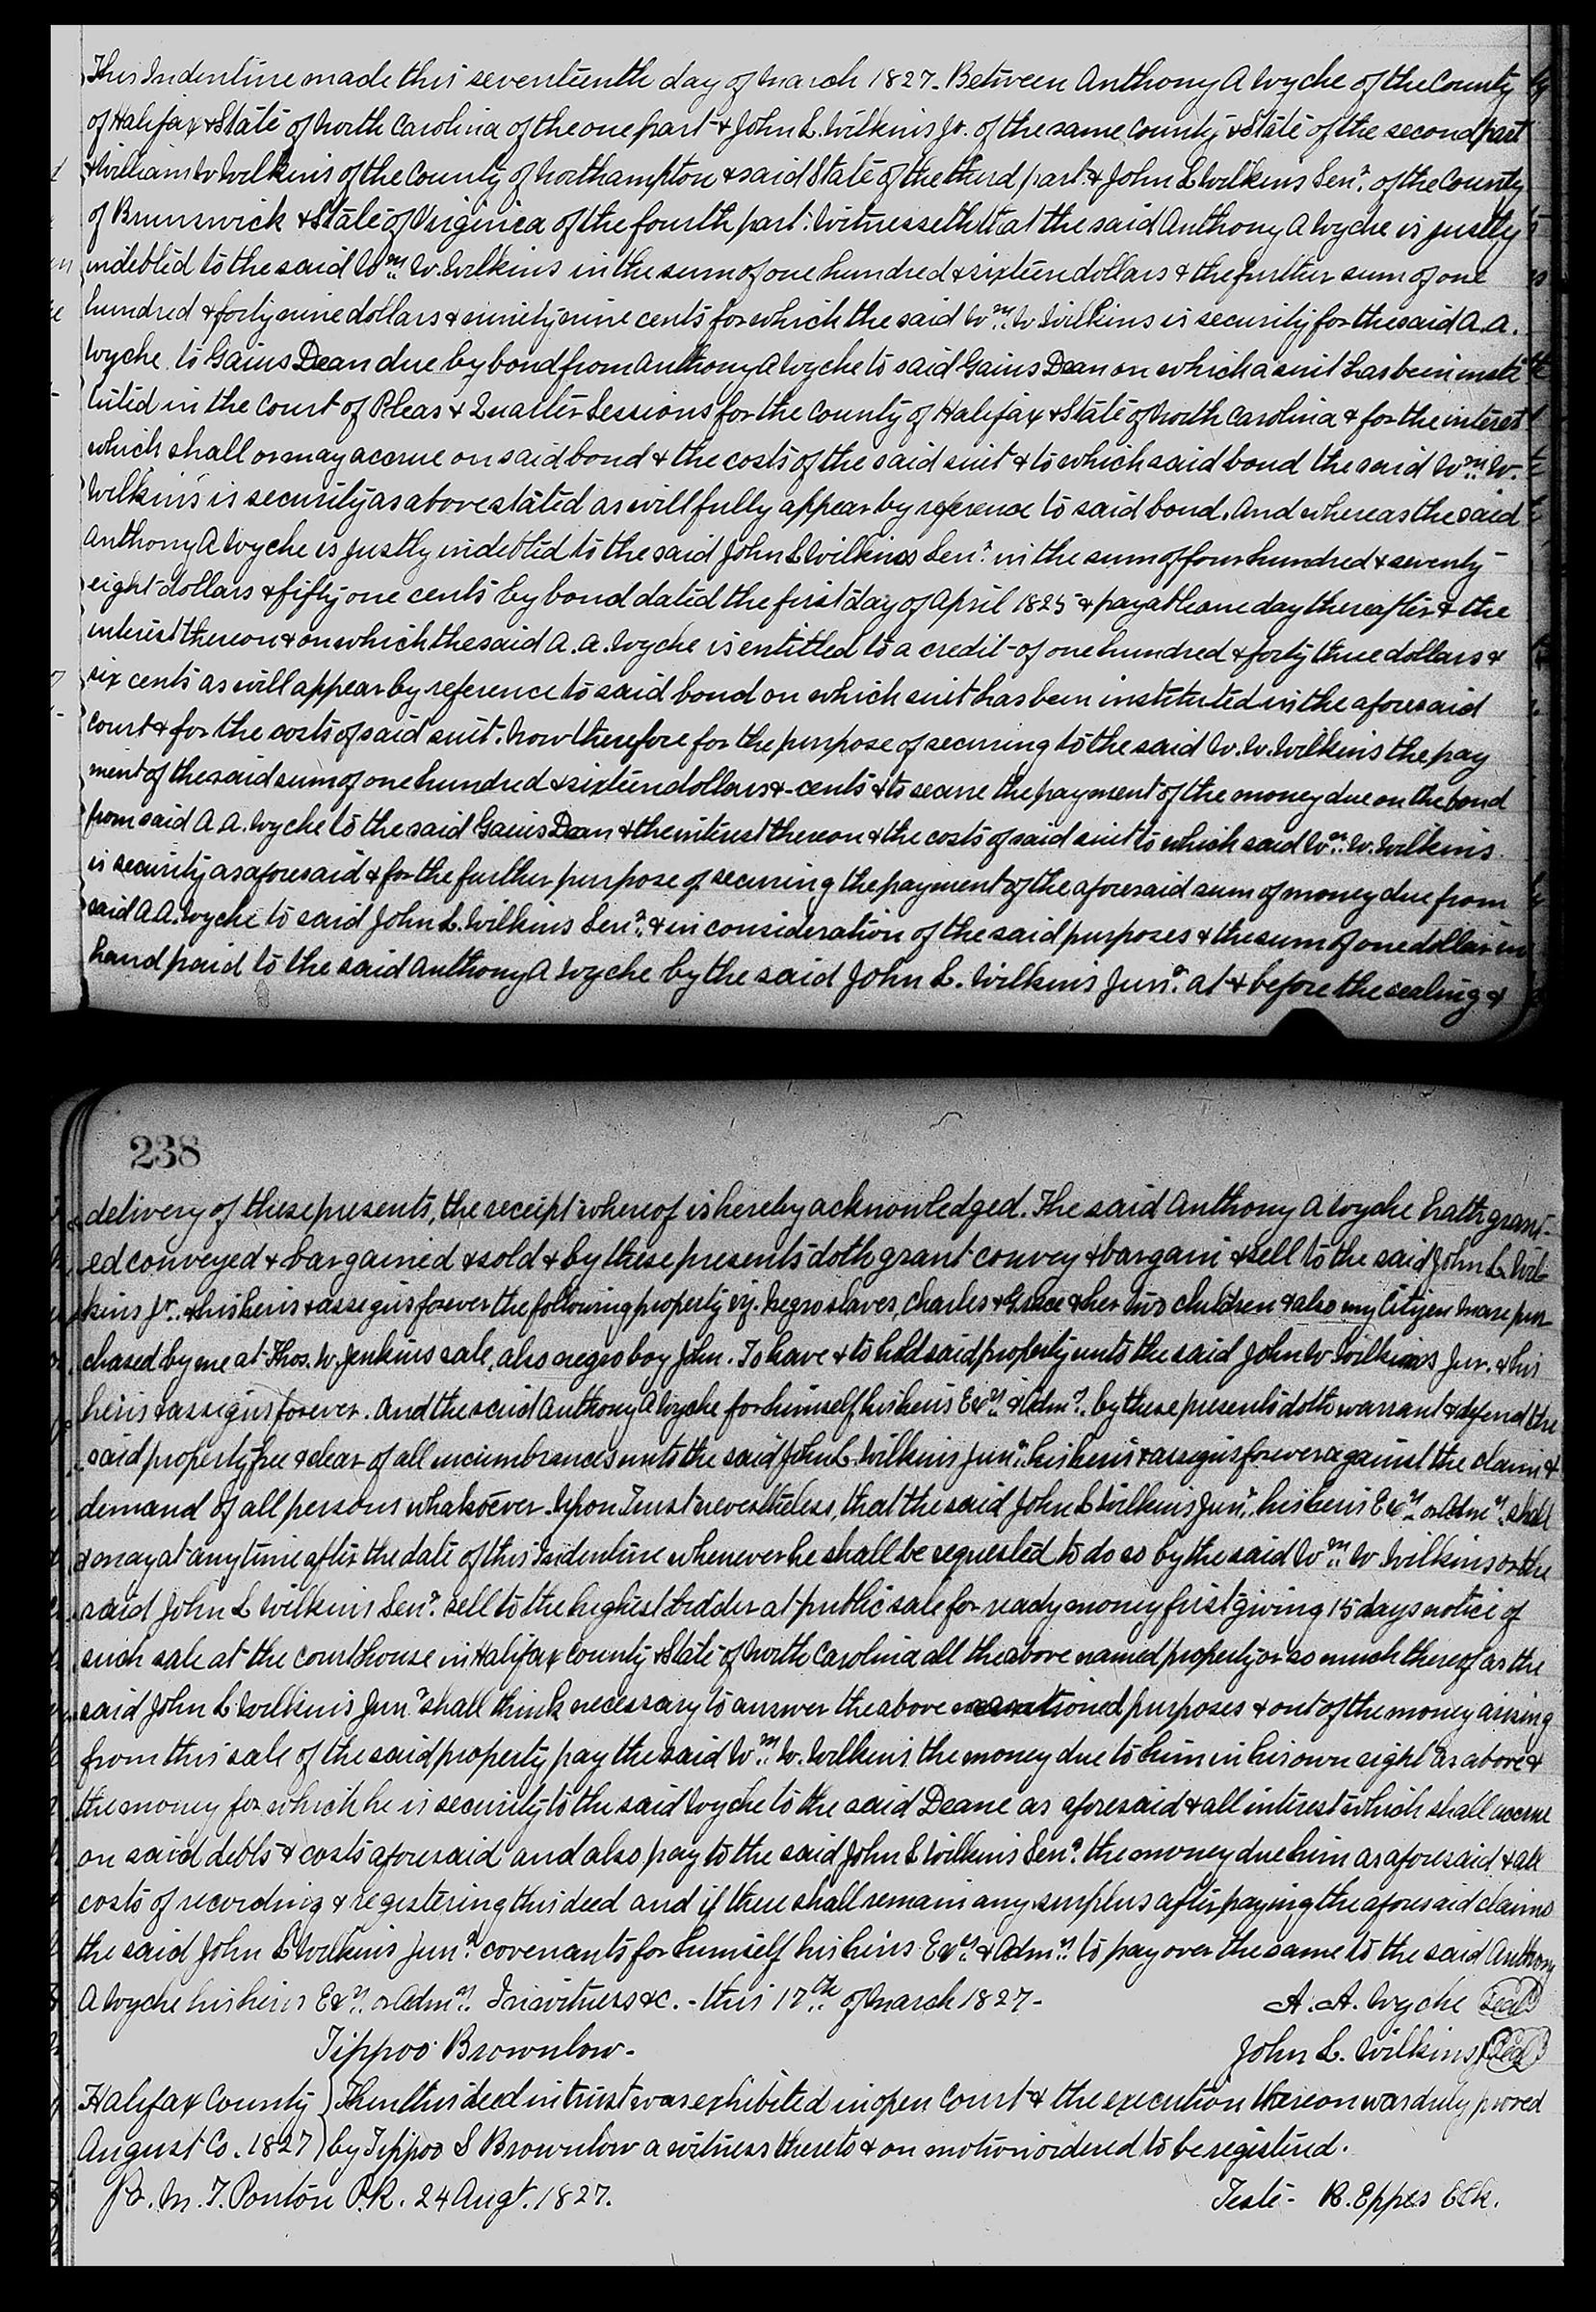 This Indenture made this seventeenth day of March 1827. Between Anthony A Wyche of the County
of Halifax & State of North Carolina of the one part & John L. Wilkins Jr. of the same County & State of the second part
& William W Wilkins of the County of Northampton & said State of the third part & John L Wilkins Senr. of the County
of Brunswick & State of Virginia of the fourth part: Witnesseth that the said Anthony A Wyche is justly
indebted to the said Wm. W. Wilkins in the sum of one hundred & sixteen dollars & the further sum of one
hundred & forty nine dollars & ninety nine cents for which the said Wm. W Wilkins is security for the said A. A.
Wyche to Gaius Dean due by bond from Anthony A Wyche to said Gaius Dean on which a suit has been insti
tuted in the Court of Pleas & Quarter Sessions for the County of Halifax & State of North Carolina & for the interest
which shall or may accrue on said bond & the costs of the said suit & to which said bond the said Wm. W.
Wilkins is security as above stated as will fully appear by reference to said bond. And whereas the said
Anthony A Wyche is justly indebted to the said John L Wilkins Senr. in the sum of four hundred & seventy
eight dollars & fifty one cents by bond dated the first day of April 1825 & payable one day thereafter & the
interest thereon & on which the said A. A. Wyche is entitled to a credit of one hundred & forty three dollars &
six cents as will appear by reference to said bond on which suit has been instituted in the aforesaid
court & for the costs of said suit. Now therefore for the purpose of securing to the said W. W. Wilkins the pay
ment of the said sum of one hundred & sixteen dollars & - cents & to secure the payment of the money due on the bond
from said A. A. Wyche to the said Gaius Dean & the interest thereon & the costs of said suit to which said Wm. W. Wilkins
is security as aforesaid & for the further purpose of securing the payment of the aforesaid sum of money due from
said A A. Wyche to said John L. Wilkins Senr. & in consideration of the said purposes & the sum of one dollar in
hand paid to the said Anthony A Wyche by the said John L. Wilkins Junr. at & before the sealing &
238
delivery of these presents, the receipt whereof is hereby acknowledged. The said Anthony A Wyche hath grant-
ed conveyed & bargained & sold & by these presents doth grant convey & bargain & sell to the said John L Wil-
kins Jr. & his heirs & assigns forever the following property viz. Negro slaves, Charles & Grace & her two children & also my Citizen mare pur
chased by me at Thos. W. Jenkins sale, also a negro boy John. To have & to hold said property unto the said John W Wilkins Jur. & his
heirs & assigns forever. And the said Anthony A Wyche for himself his heirs Exrs. & Admrs. by these presents doth warrant & defend the
said property free & clear of all incumbrances unto the said John L. Wilkins Junr. his heirs & assigns forever against the claim &
demand of all persons whatsoever. Upon Trust nevertheless, that the said John L Wilkins Junr. his heirs Exrs. or Admrs. shall
& may at any time after the date of this Indenture whenever he shall be requested to do so by the said Wm. W Wilkins or the
said John L Wilkins Senr. sell to the highest bidder at public sale for ready money first giving 15 days notice of
such sale at the courthouse in Halifax County & State of North Carolina all the above named property or so much thereof as the
said John L Wilkins Junr. shall think necessary to answer the above mentioned purposes & out of the money arising
from this sale of the said property pay the said Wm. W. Wilkins the money due to him in his own right as above &
the money for which he is security to the said Wyche to the said Deane as aforesaid & all interest which shall accrue
on said debts & costs aforesaid and also pay to the said John L Wilkins Senr. the money due him as aforesaid & all
costs of recording & registering this deed and if there shall remain any surplus after paying the aforesaid claims
the said John L Wilkins Junr. covenants for himself his heirs Exrs. & Admrs. to pay over the same to the said Anthony
A Wyche his heirs Exrs. or Admrs. In witness &c. - this 17th. of March 1827-
A. A. Wyche Seal
Tippoo Brownlow-
John L. Wilkins Jr Seal
Halifax County } Then this deed in trust was exhibited in open Court & the execution thereon was duly proved
August Co. 1827 } by Tippoo S Brownlow a witness thereto & on motion ordered to be registered.
Pr. M. T. Ponton P.R. 24 Augt. 1827.
Teste- R. Eppes Clk.